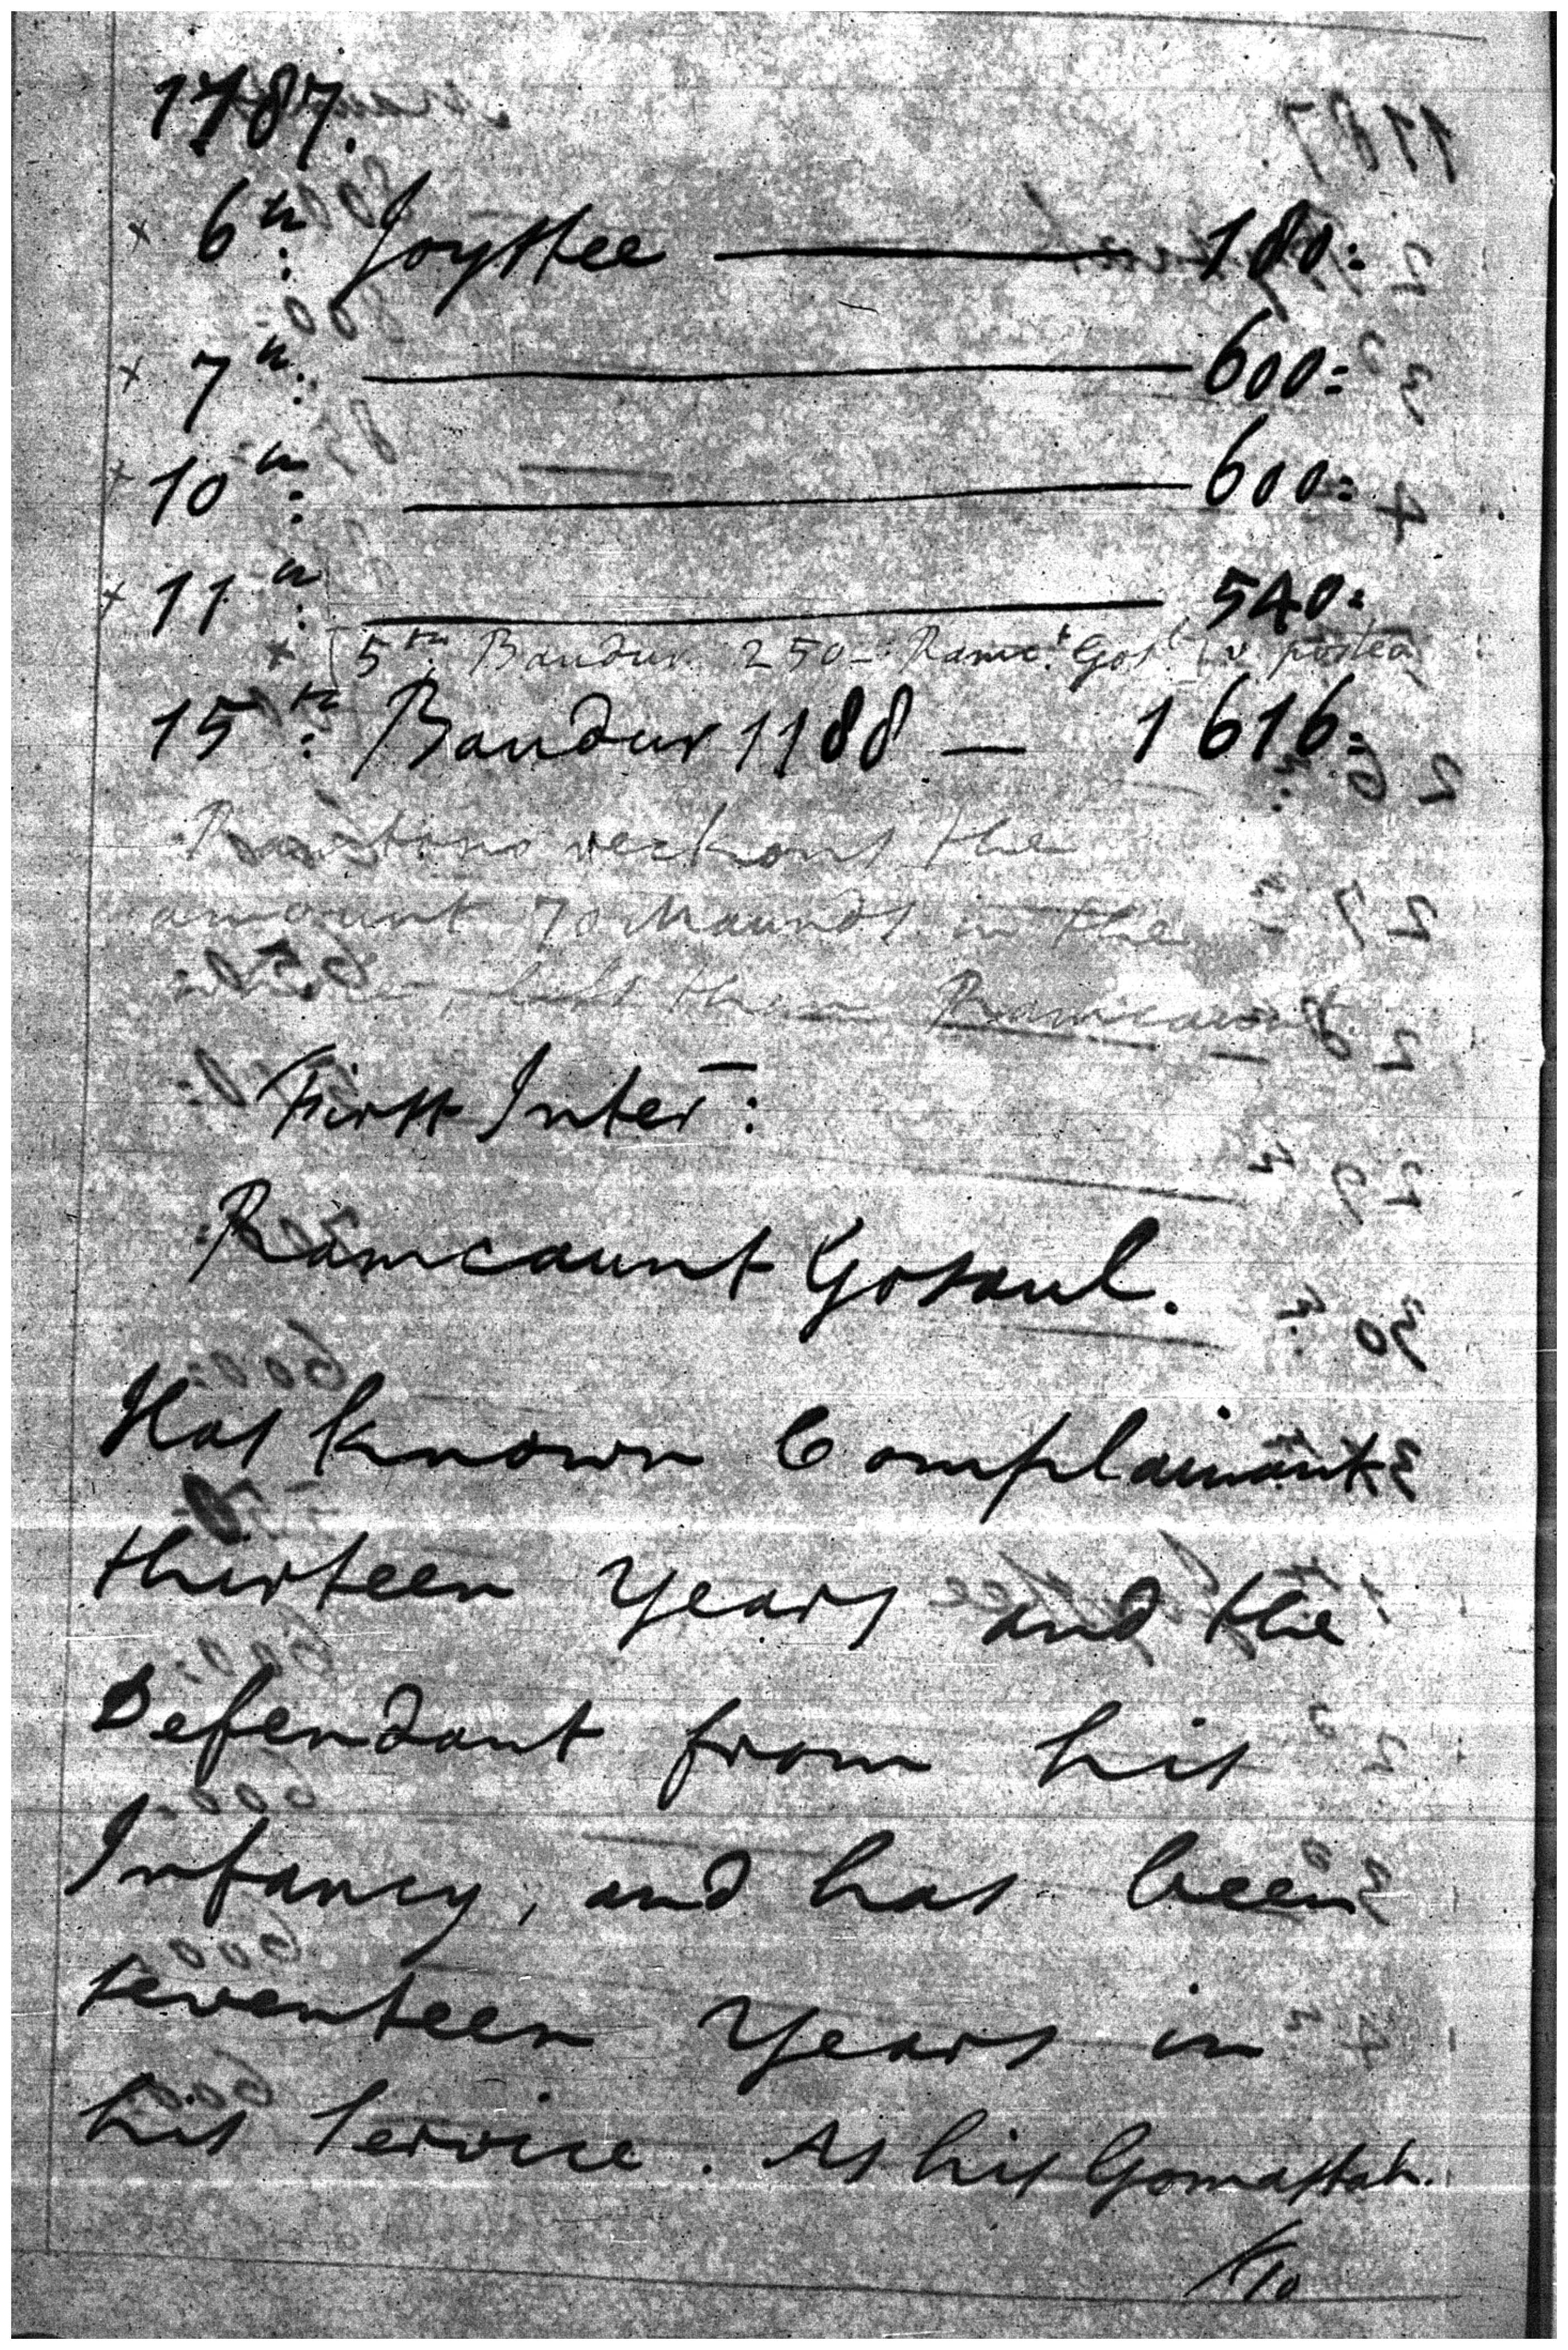 1787.
x 6th: Joystee — 180=
x 7th: — 600=
x 10th: — 600=
x 11th: — 540=
x [5th Baudur 250 – Ramc.t Gos.l v postea
15th: Baudur 1188 — 1616=
reckons the
amount 70 Maunds in the
Ramcaunt.
First Inter:
Ramcaunt Gosaul.
Has known Complainant
thirteen Years and the
Defendant from his
Infancy, and has been
seventeen Years in
his Service. As his Gomastah.